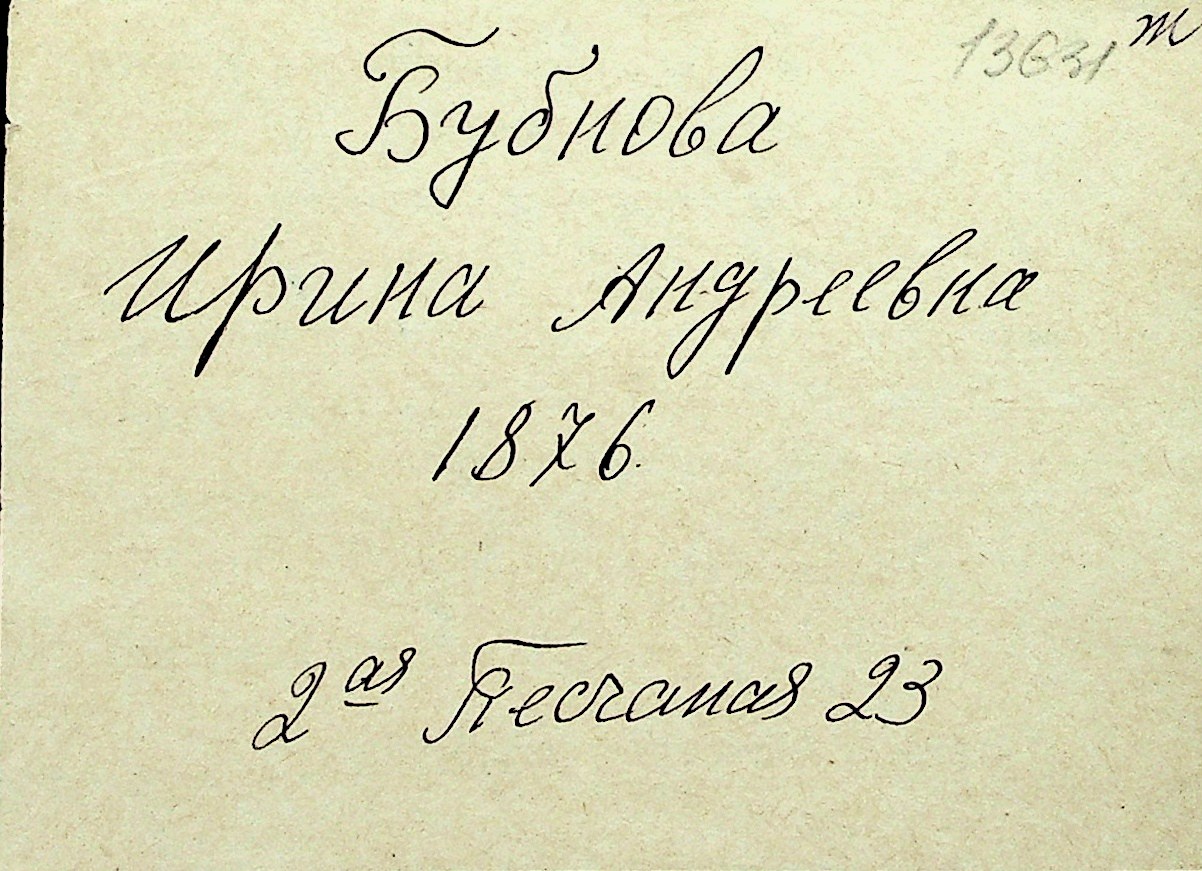 13631 т
Бубнова
Ирина Андреевна
1876.
2ая Песчаная 23